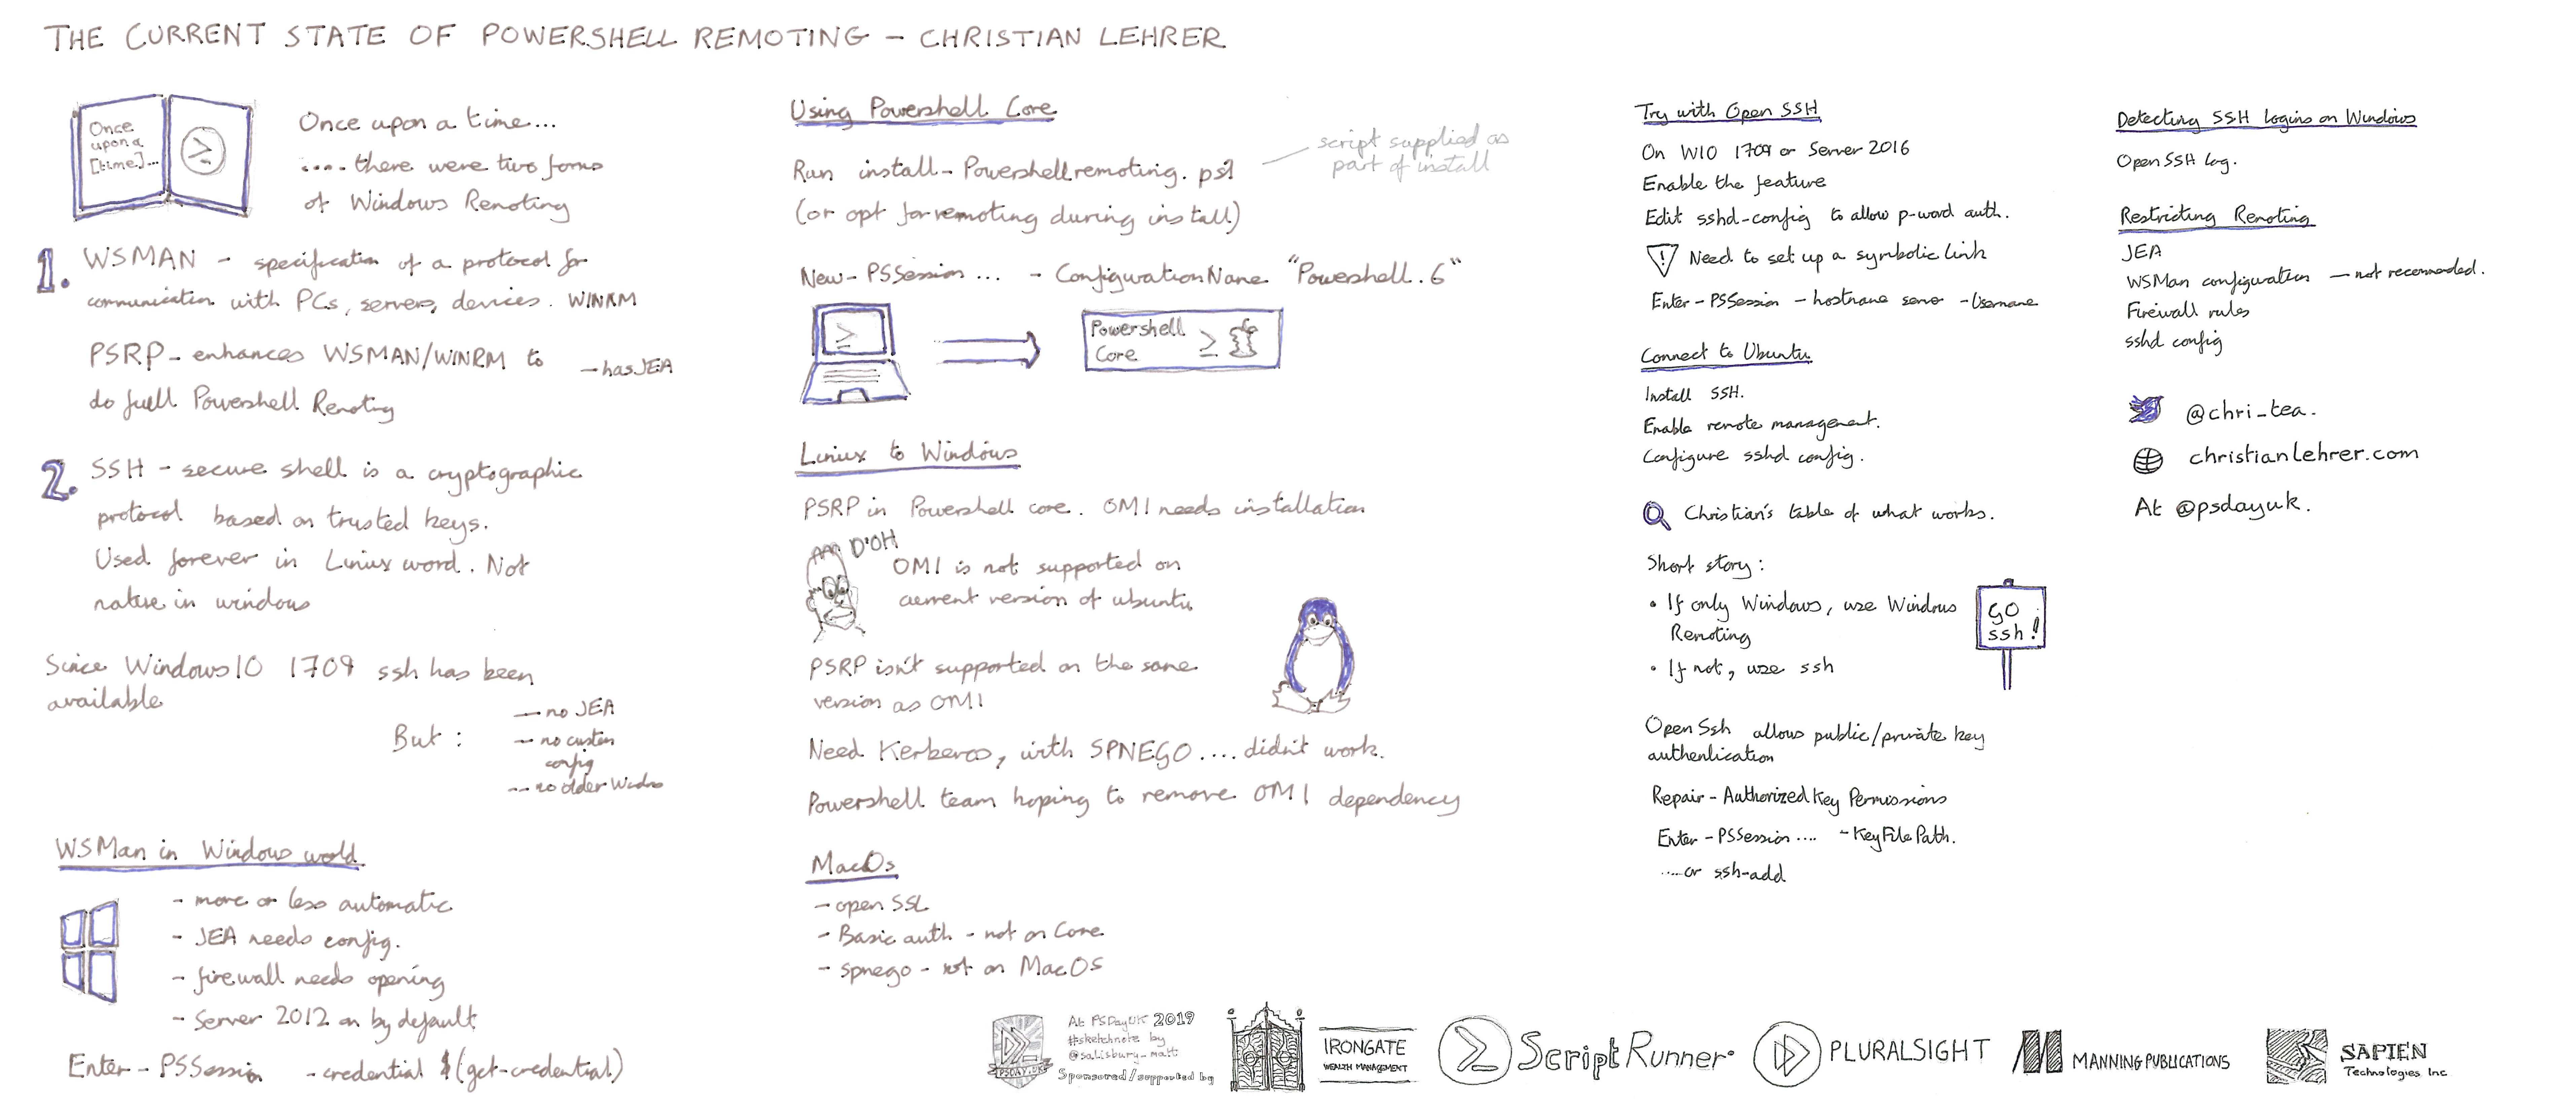 THE CURRENT STATE OF POWERSHELL REMOTING – CHRISTIAN LEHRER
Once
upon a
[time]...
Once upon a time...
.... there were two forms
of Windows Remoting
1. WSMAN - specification of a protocol for
communication with PCs, servers, devices. WINRM
PSRP - enhances WSMAN/WINRM to
do full Powershell Remoting
- has JEA
2. SSH - secure shell is a cryptographic
protocol based on trusted keys.
Used forever in Linux word. Not
native in windows
Since Windows 10 1709 ssh has been
available
But :
- no JEA
- no custom
config
-- no older Windows
WSMan in Windows world
- more or less automatic
- JEA needs config.
- firewall needs opening
- Server 2012 on by default
Enter - PSSession - credential $(get-credential)
Using Powershell Core
Run install-Powershellremoting.ps1
script supplied as
part of install
(or opt for remoting during install)
New-PSSession ... - ConfigurationName "Powershell.6"
Powershell
Core
Linux to Windows
PSRP in Powershell core. OMI needs installation
D'OH
OMI is not supported on
current version of ubuntu
PSRP isn't supported on the same
version as OMI
Need Kerberos, with SPNEGO .... didn't work.
Powershell team hoping to remove OMI dependency
MacOs
- open SSL
- Basic auth - not on Core
- spnego - not on MacOS
Try with Open SSH
On W10 1709 or Server 2016
Enable the feature
Edit sshd-config to allow p-word auth.
! Need to set up a symbolic link
Enter-PSSession -hostname server -Username
Connect to Ubuntu
Install SSH.
Enable remote management.
Configure sshd config.
Christian's table of what works.
Short story:
• If only Windows, use Windows
Remoting
• If not, use ssh
GO
ssh!
Open Ssh allows public/private key
authentication
Repair-AuthorizedKey Permissions
Enter-PSSession .... -KeyFilePath.
.... or ssh-add
Detecting SSH logins on Windows
Open SSH log.
Restricting Remoting
JEA
WSMan configuration - not recommended.
Firewall rules
sshd config
@chri_tea.
christianlehrer.com
At @psdayuk.
PSDAY.UK
At PSDayUK 2019
#sketchnote by
@salisbury_matt
Sponsored/supported by
IRONGATE
WEALTH MANAGEMENT
ScriptRunner
PLURALSIGHT
MANNING PUBLICATIONS
SAPIEN
Technologies Inc